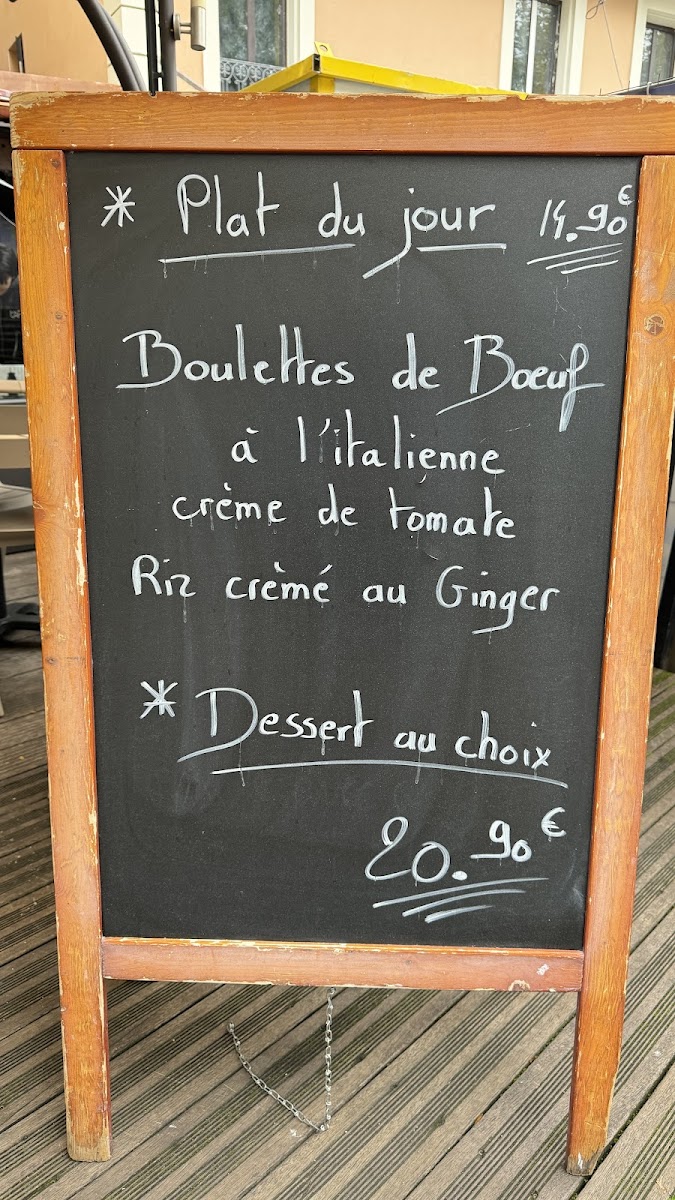 * Plat du jour 14.90€
Boulettes de Boeuf
à l'italienne
crème de tomate
Riz crèmé au Ginger
* Dessert au choix
20.90€